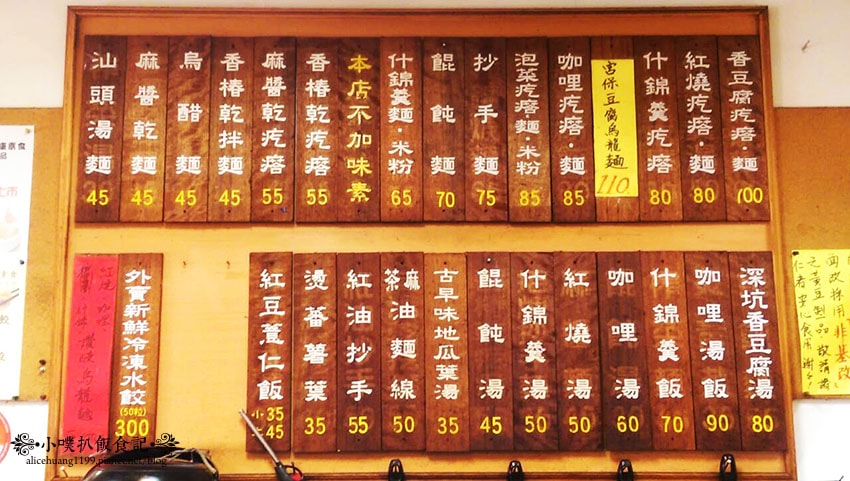 香豆腐疙瘩·麵 100
紅燒疙瘩·麵 80
什錦羹疙瘩 80
宮保豆腐烏龍麵 110
咖哩疙瘩·麵 85
泡菜疙瘩·麵·米粉 85
抄手麵 75
餛飩麵 70
什錦羹麵·米粉 65
本店不加味素
香椿乾疙瘩 55
麻醬乾疙瘩 55
香椿乾拌麵 45
烏醋麵 45
麻醬乾麵 45
汕頭湯麵 45
深坑香豆腐湯 80
咖哩湯飯 90
什錦羹飯 70
咖哩湯 60
紅燒湯 50
什錦羹湯 50
餛飩湯 45
古早味地瓜葉湯 35
麻茶油麵線 50
紅油抄手 55
燙蕃薯葉 35
紅豆薏仁飯 小35 大45
外賣新鮮冷凍水餃(50粒) 300
紅燒·咖哩
採用非基改
之黃豆製品 敬請
小噗扒飯食記
alicehuang1199.pixnet.net/blog